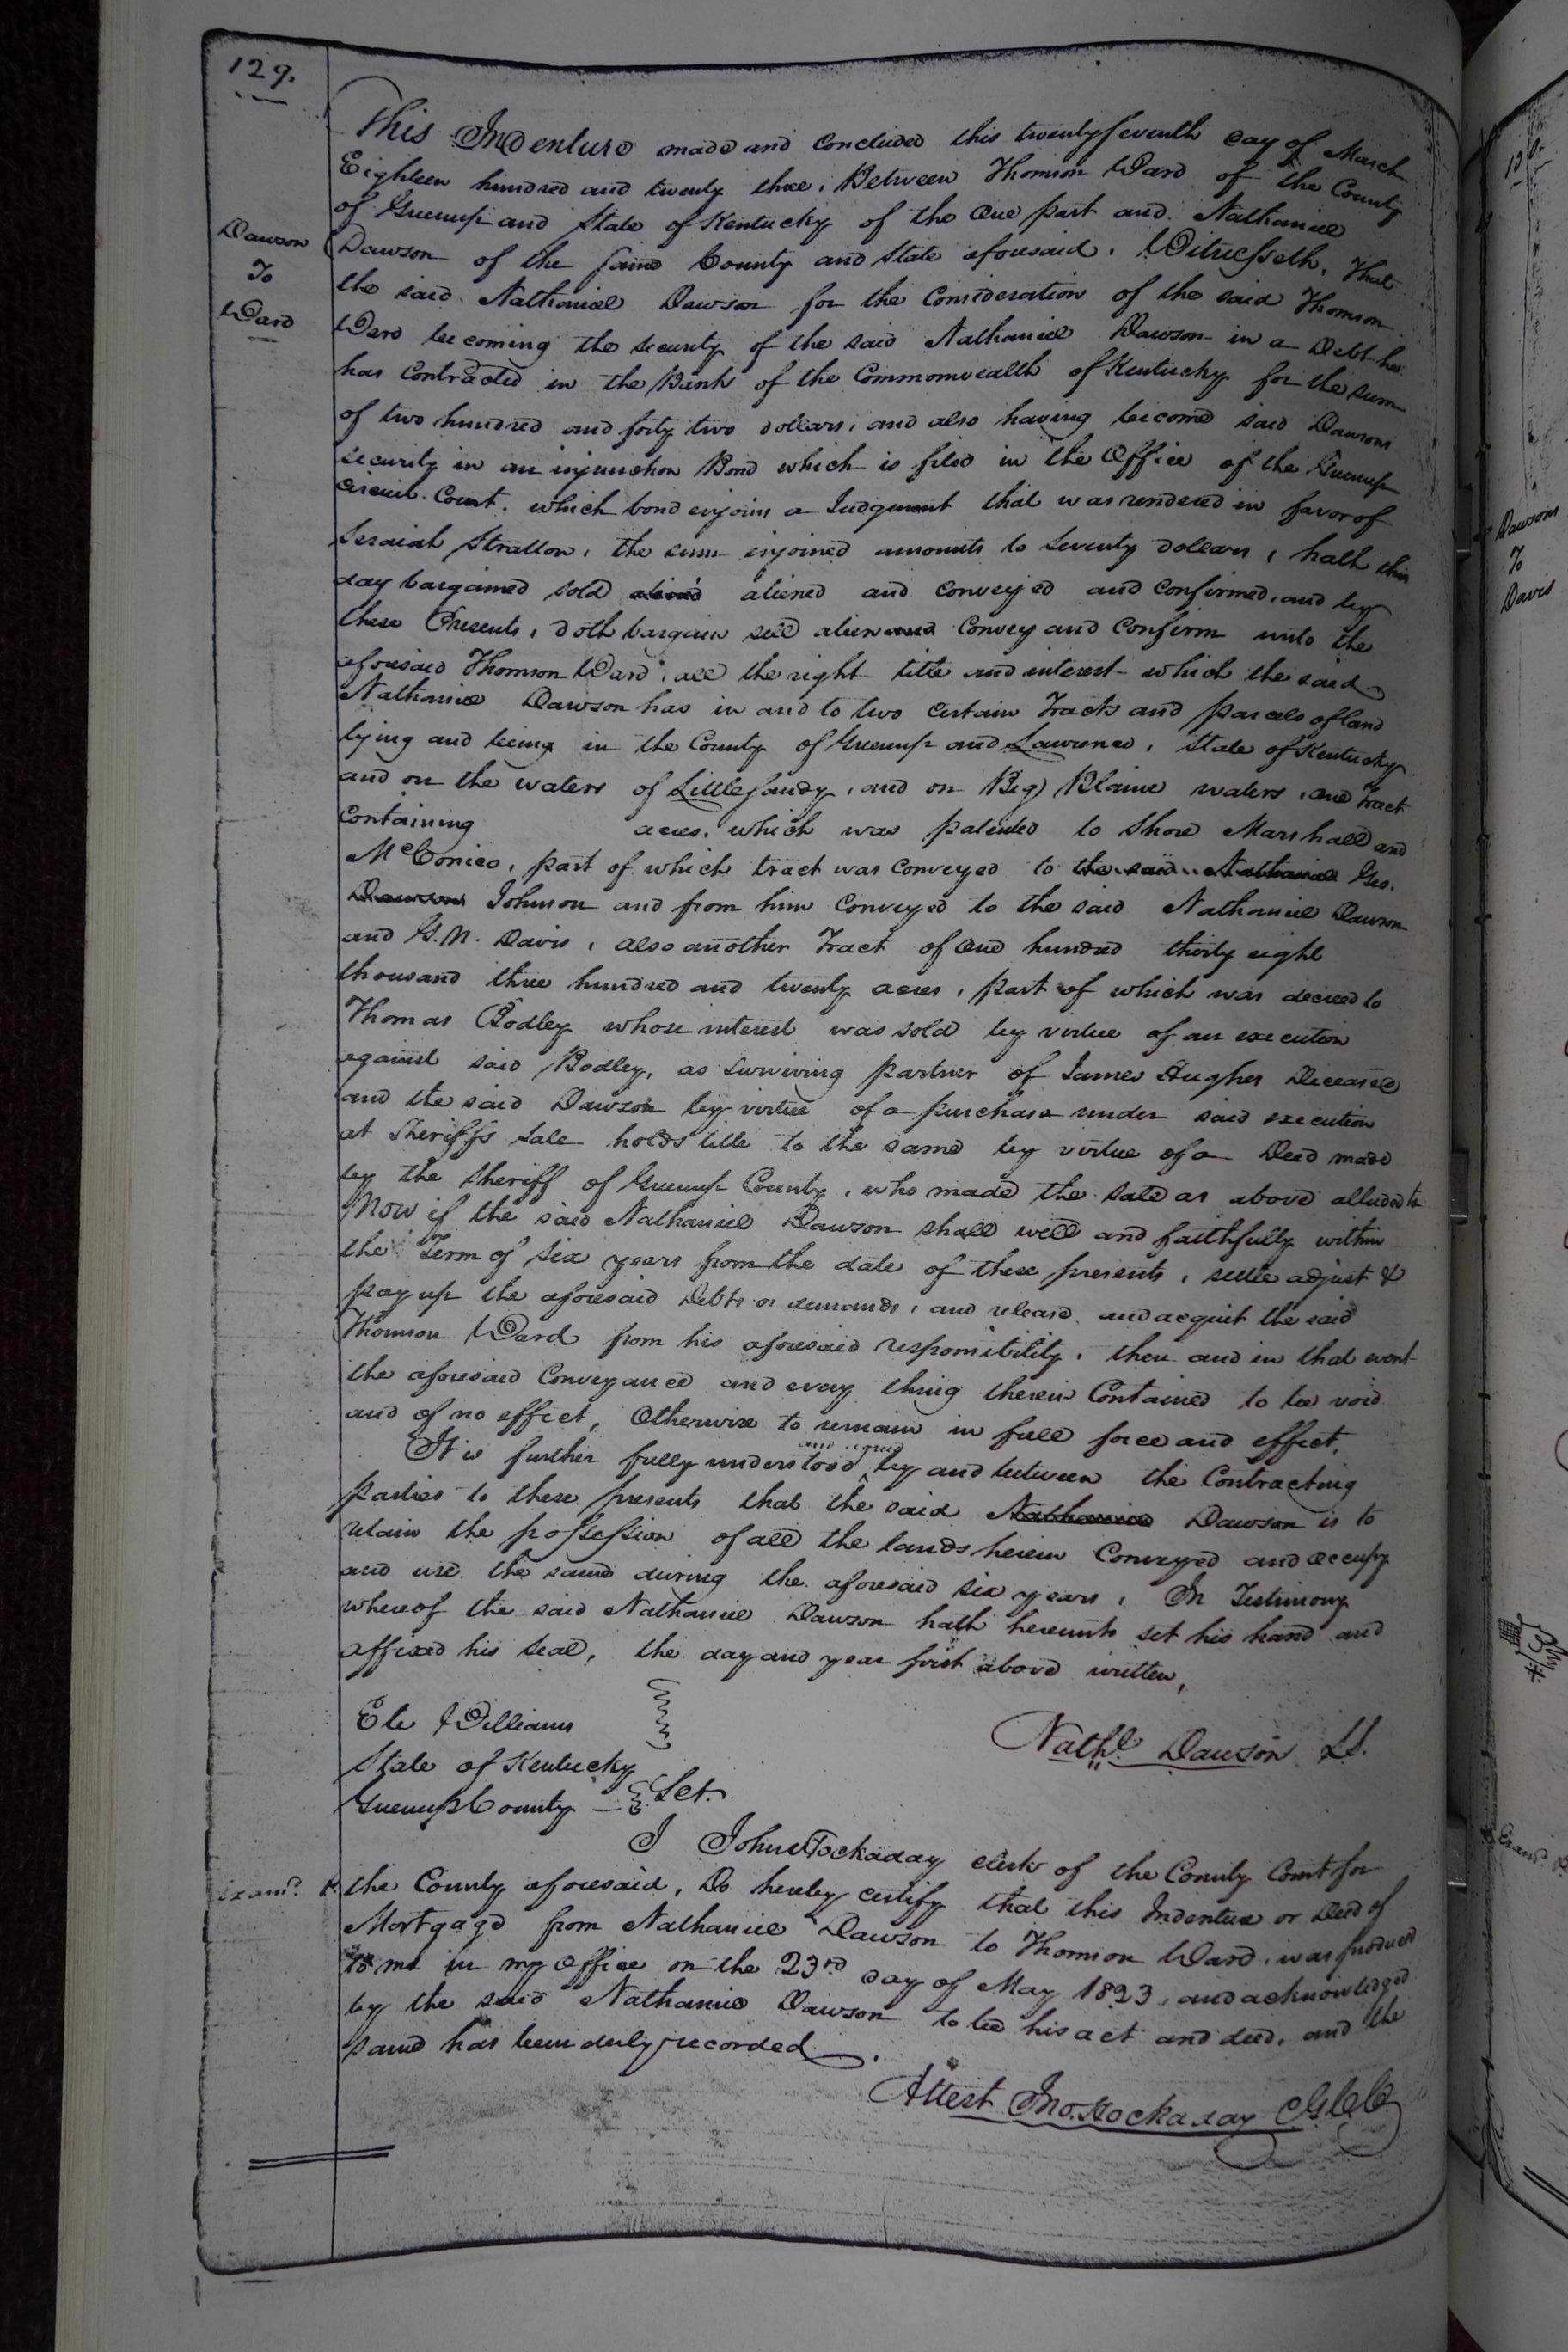 129.
Dawson
To
Ward
This Indenture made and concluded this twenty seventh day of March
Eighteen hundred and twenty three, Between Thomson Ward of the County
of Greenup and State of Kentucky of the One part and Nathaniel
Dawson of the same County and State aforesaid. Witnesseth, That
the said Nathaniel Dawson for the Consideration of the said Thomson
Ward becoming the security of the said Nathaniel Dawson in a Debt he
has Contracted in the Bank of the Commonwealth of Kentucky for the sum
of two hundred and forty two dollars, and also having become said Dawsons
security in an injunction Bond which is filed in the Office of the Greenup
Circuit Court. which bond enjoins a Judgment that was rendered in favor of
Seraiah Stratton, the sum enjoined amounts to Seventy dollars, hath this
day bargained sold aliened and conveyed and confirmed, and by
these Presents, doth bargain sell alien and Convey and Confirm unto the
aforesaid Thomson Ward all the right title and interest which the said
Nathaniel Dawson has in and to two certain Tracts and parcels of land
lying and being in the County of Greenup and Lawrence, State of Kentucky
and on the waters of Little Sandy, and on Big Blaine waters, one Tract
Containing acres. which was patented to Shore Marshall and
McConico, part of which tract was Conveyed to the said Nathaniel Geo.
Dawson Johnson and from him Conveyed to the said Nathaniel Dawson
and G. N. Davis, also another Tract of One hundred thirty eight
thousand three hundred and twenty acres, part of which was decreed to
Thomas Bodley whose interest was sold by virtue of an execution
against said Bodley, as surviving partner of James Hughes Deceased
and the said Dawson by virtue of a purchase under said execution
at Sheriffs sale holds title to the same by virtue of a Deed made
by the Sheriff of Greenup County, who made the sale as above alluded to
Now if the said Nathaniel Dawson shall well and faithfully within
the Term of six years from the date of these presents, settle adjust &
pay up the aforesaid Debts or demands, and release and acquit the said
Thomson Ward from his aforesaid responsibility, then and in that event
the aforesaid Conveyance and every thing therein Contained to be void
and of no effect, Otherwise to remain in full force and effect,
It is further fully understood and agreed by and between the Contracting
parties to these presents that the said Nathaniel Dawson is to
retain the possession of all the lands herein Conveyed and occupy
and use the same during the aforesaid six years, In Testimony
whereof the said Nathaniel Dawson hath hereunto set his hand and
affixed his seal, the day and year first above written,
Nathl Dawson LS.
Ele Williams
State of Kentucky
Greenup County Sct.
I John Hockaday clerk of the County Court for
Exam.d
the County aforesaid, Do hereby certify that this Indenture or Deed of
Mortgage from Nathaniel Dawson to Thomson Ward, was produced
to me in my Office on the 23rd day of May 1823, and acknowledged
by the said Nathaniel Dawson to be his act and deed, and the
same has been duly recorded.
Attest Jno. Hockaday C.G.C.C.
Dawsons
To
Davis
Exam.d